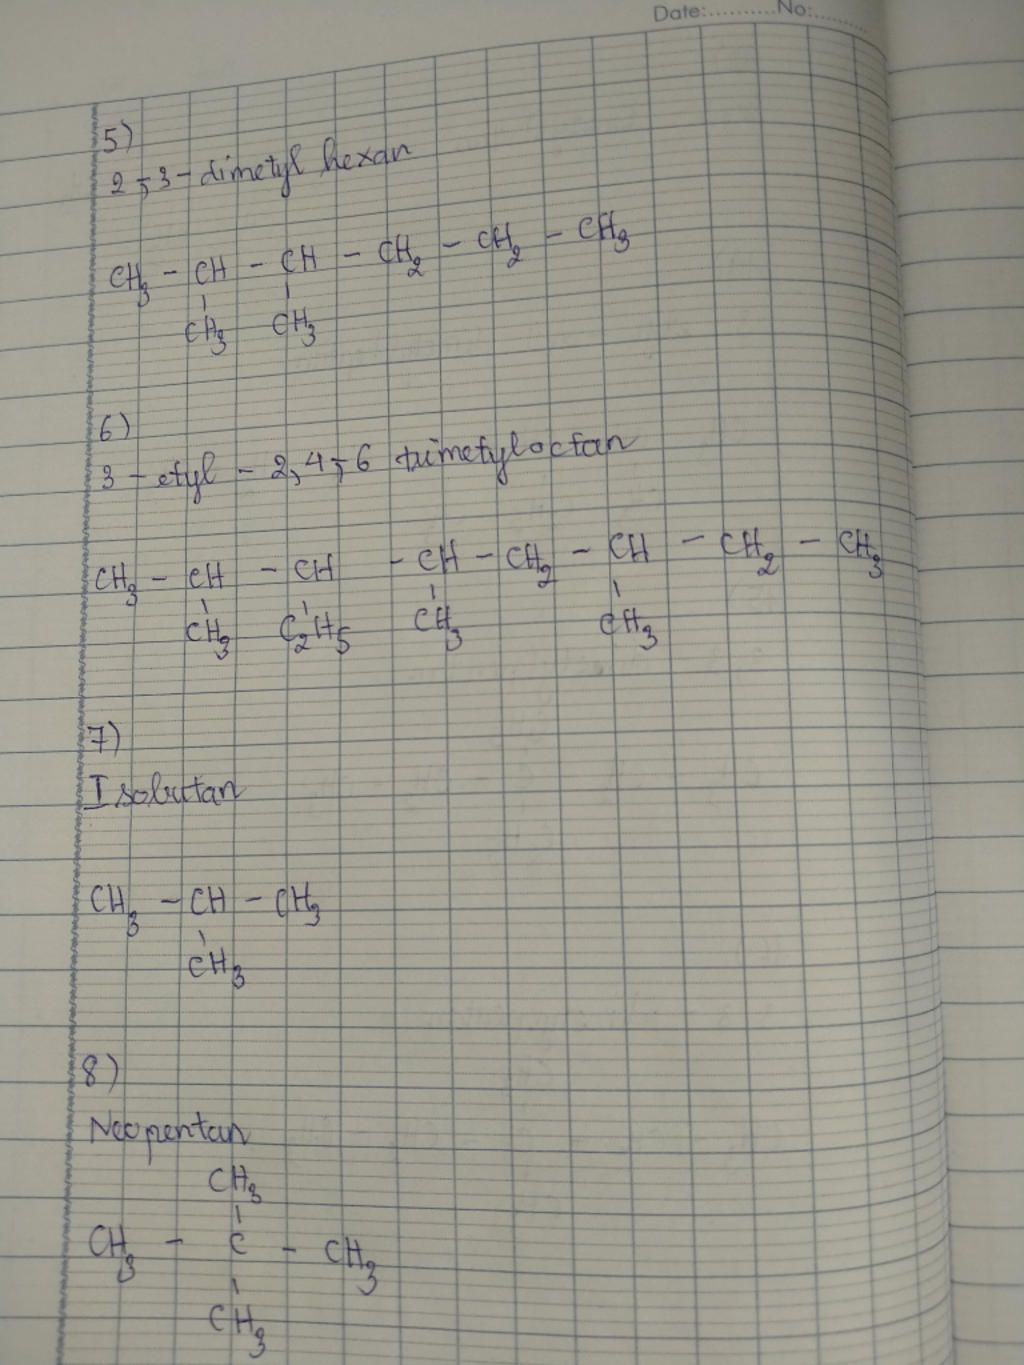 Date:..........No:........
5)
2,3-dimetyl hexan
CH3 - CH - CH - CH2 - CH2 - CH3
CH3 CH3
6)
3-etyl-2,4,6 trimetyloctan
CH3 - CH - CH - CH - CH2 - CH - CH2 - CH3
CH3 C2H5 CH3 CH3
7)
Isobutan
CH3 - CH - CH3
CH3
8)
Neopentan
CH3
CH3 - C - CH3
CH3